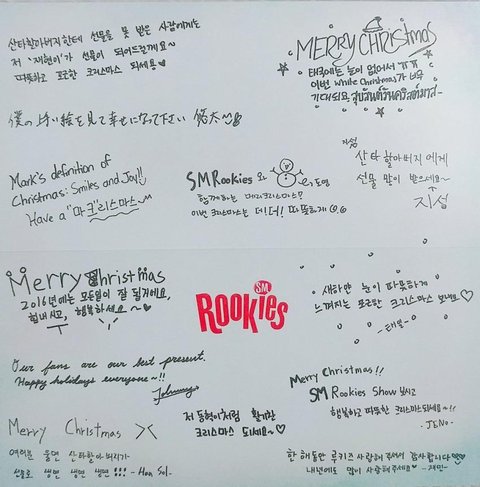 산타할아버지한테 선물을 못 받은 사람에게는
저 "재현이"가 선물이 되어드릴께요~
따뜻하고 포근한 크리스마스 되세용♥
MERRY CHRISTMAS
태국에는 눈이 없어서 ㅠㅠ
이번 White Christmas가 너무
기대되요 สุขสันต์วันคริสต์มาส~
僕の 絵を見て幸せになって下さい
Mark's definition of
Christmas: Smiles and Joy!!
Have a "마크"리스마스~
SMRookies 와 도영
함께하는 메리크리스마스?
이번 크리스마스는 더! 따뜻하게
지성
산타 할아버지에게
선물 많이 받으세요~
지성
Merry Christmas
2016년에는 모든일이 잘 될거에요,
힘내시고, 행복하세요~
SM
ROOKIES
새하얀 눈이 따뜻하게
느껴지는 포근한 크리스마스 보내요♡
-태일-
Our fans are our best present.
Happy holidays everyone~!!
Johnny
Merry Christmas!!
SM Rookies Show 보시고
행복하고 따뜻한 크리스마스되세요~!!
JENO-
저 동혁이처럼 활기찬
크리스마스 되세요~♡
Merry Christmas ><
여러분 울면 산타할아버지가
선물로 냉면 냉면 냉면!!! -Han Sol-
한해동안 루키즈 사랑해주셔서 감사합니다
내년에도 많이 사랑해주세요♡ -재민-